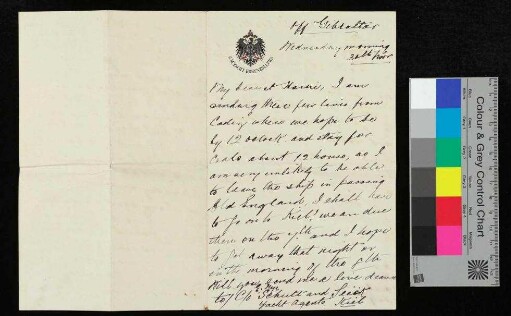 Off Gibraltar
Wednesday morning
30th Novr
My dearest Harrie, I am
sending these few lines from
Cadiz where we hope to be
by 12 o'clock and stay for
Coals about 12 hours, as I
am very unlikely to be able
to leave the ship in passing
Old England, I shall have
to go on to Kiel! we are due
there on the 7th and I hope
to get away that night or
on the morning of the 8th
Will you send me a line dearest
to 7 C/o Schultt and
Yacht Agents Kiel
Colour & Grey Control Chart